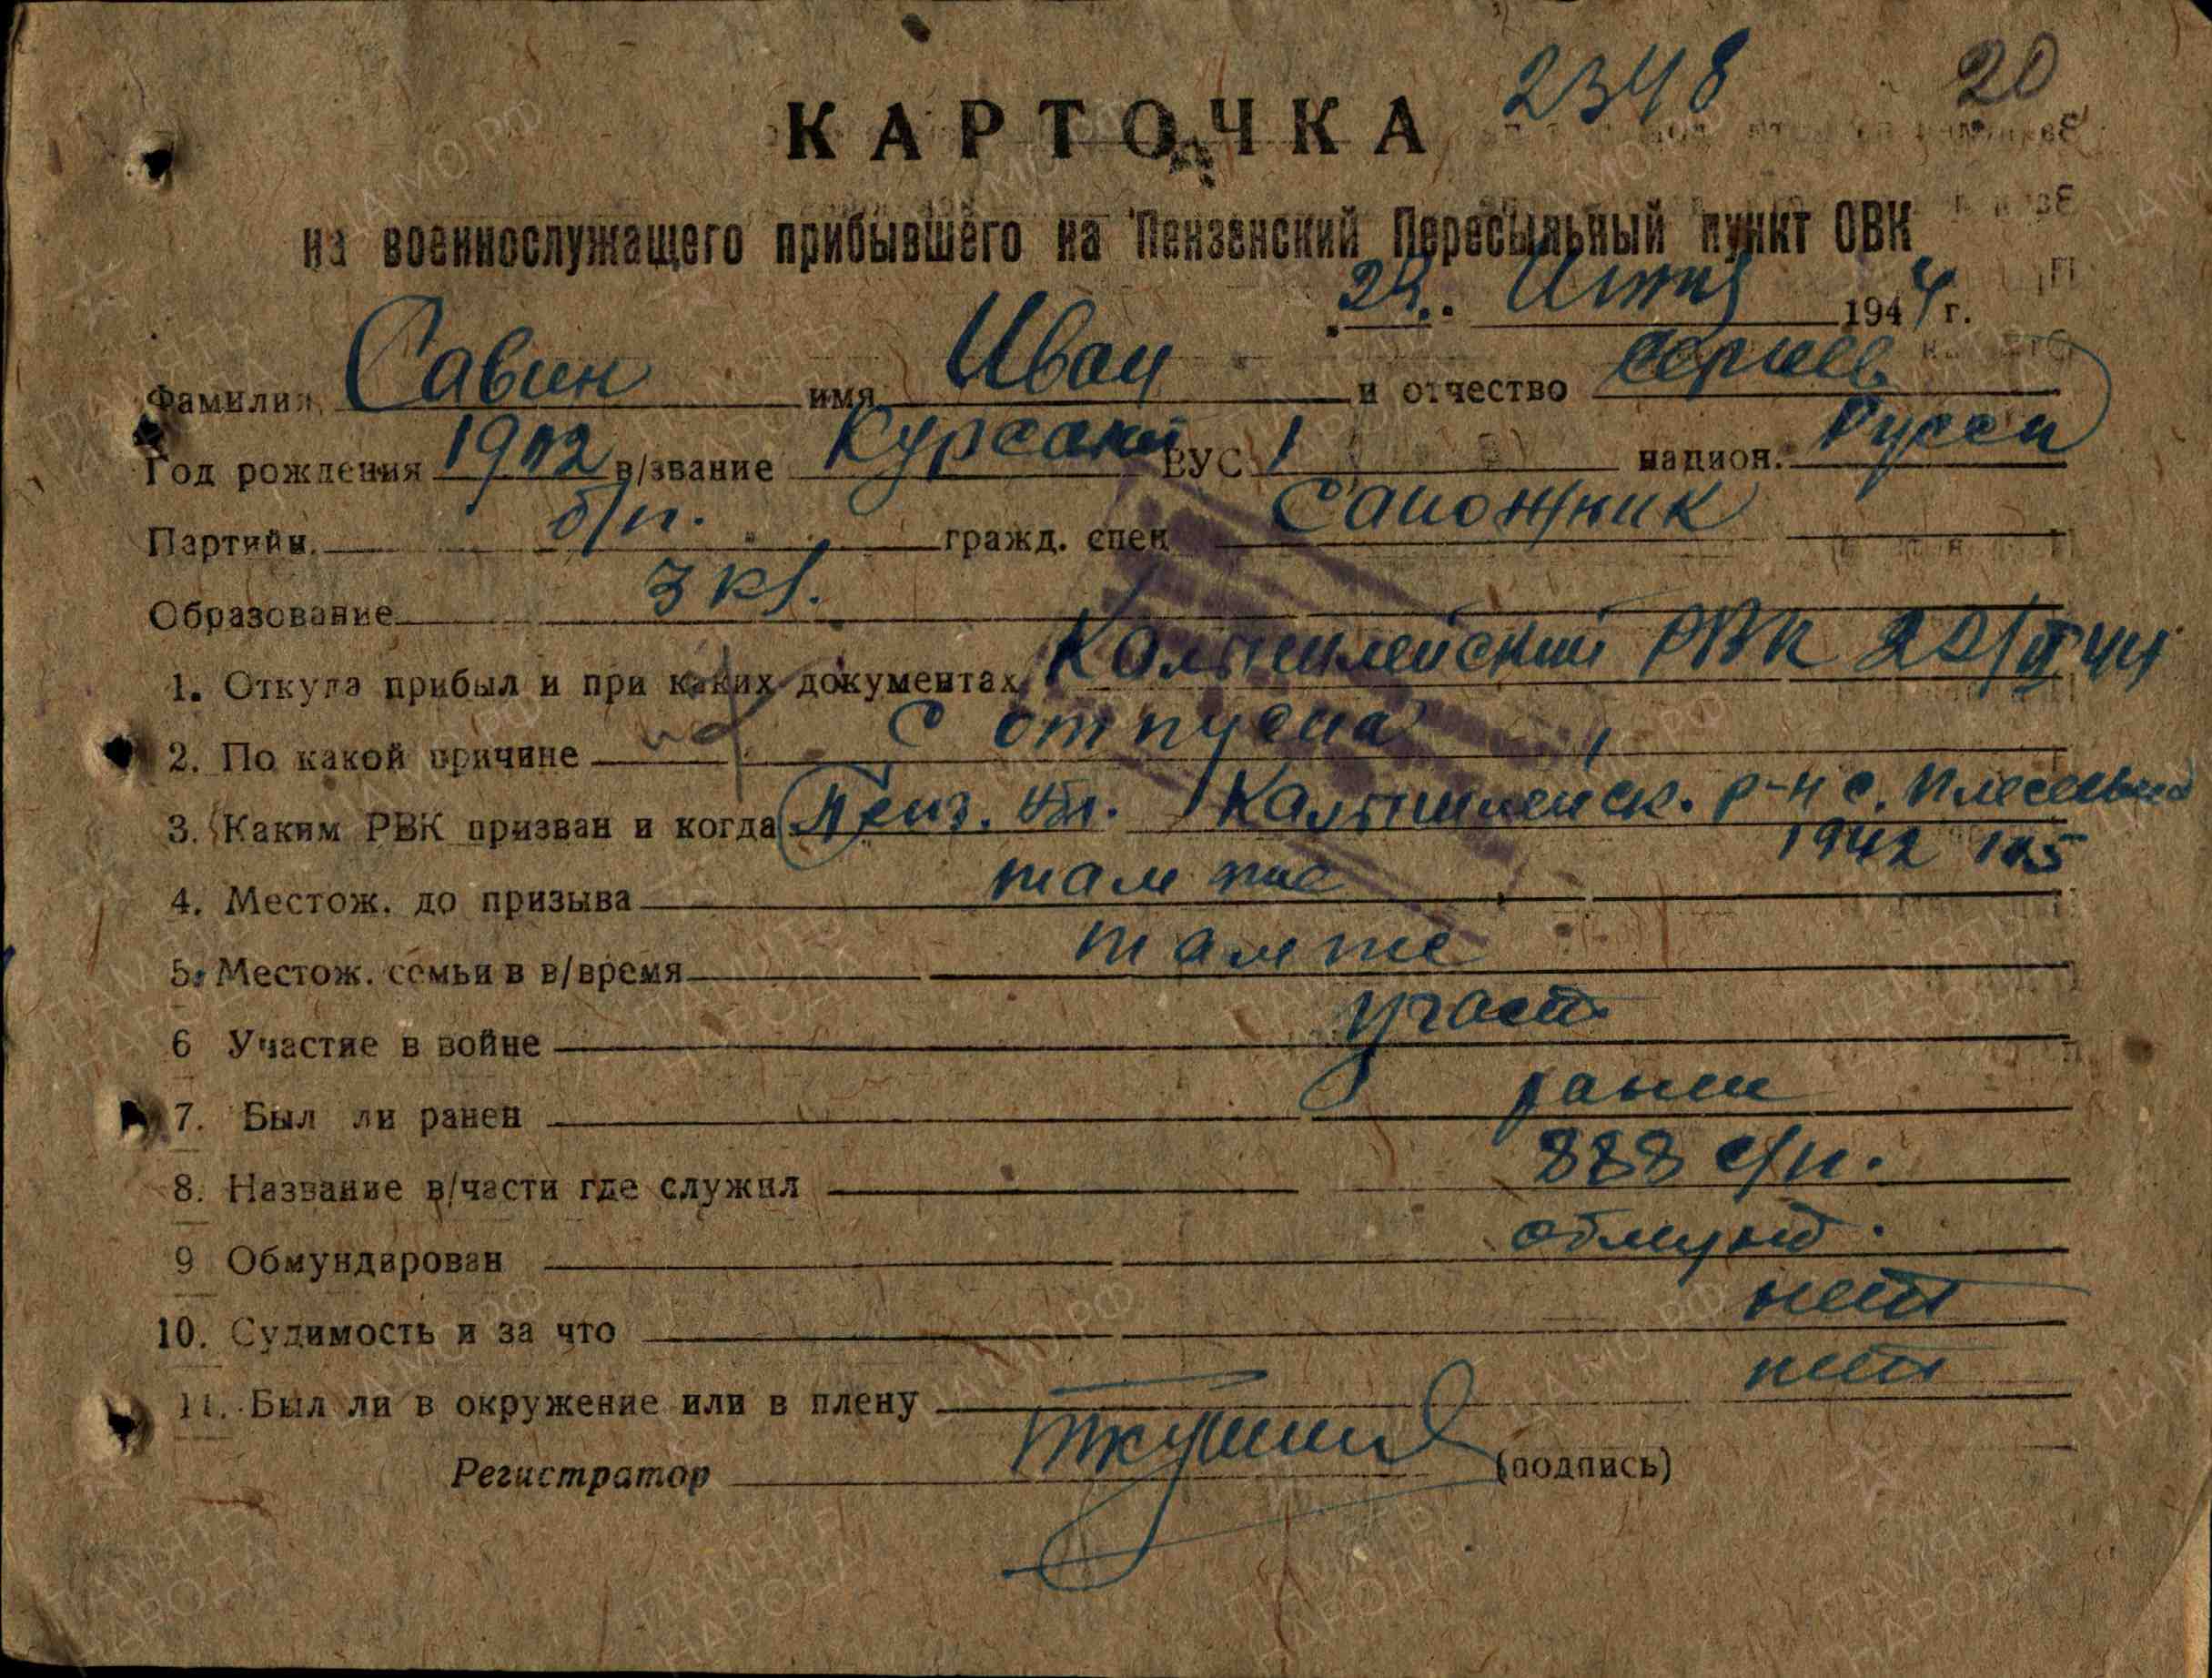 2348 20
КАРТОЧКА
на военнослужащего прибывшего на Пензенский Пересыльный пункт ОВК
194 4 г.
Фамилия Савин имя Иван и отчество Сергеев
Год рождения 1912 в/звание Курсант ВУС 1 национ. Русск
Партийн. б/п. гражд. спец Сапожник
Образование 3 кл.
1. Откуда прибыл и при каких документах Колышлейский РВК
2. По какой причине с отпуска
3. Каким РВК призван и когда Пенз. обл. Колышлейск. р-н с.
1942
4. Местож. до призыва там же
5. Местож. семьи в в/время там же
6 Участие в войне участ
7. Был ли ранен ранен
8. Название в/части где служил 888 с/п.
9 Обмундирован обмунд.
10. Судимость и за что нет
11. Был ли в окружение или в плену нет
Регистратор (подпись)